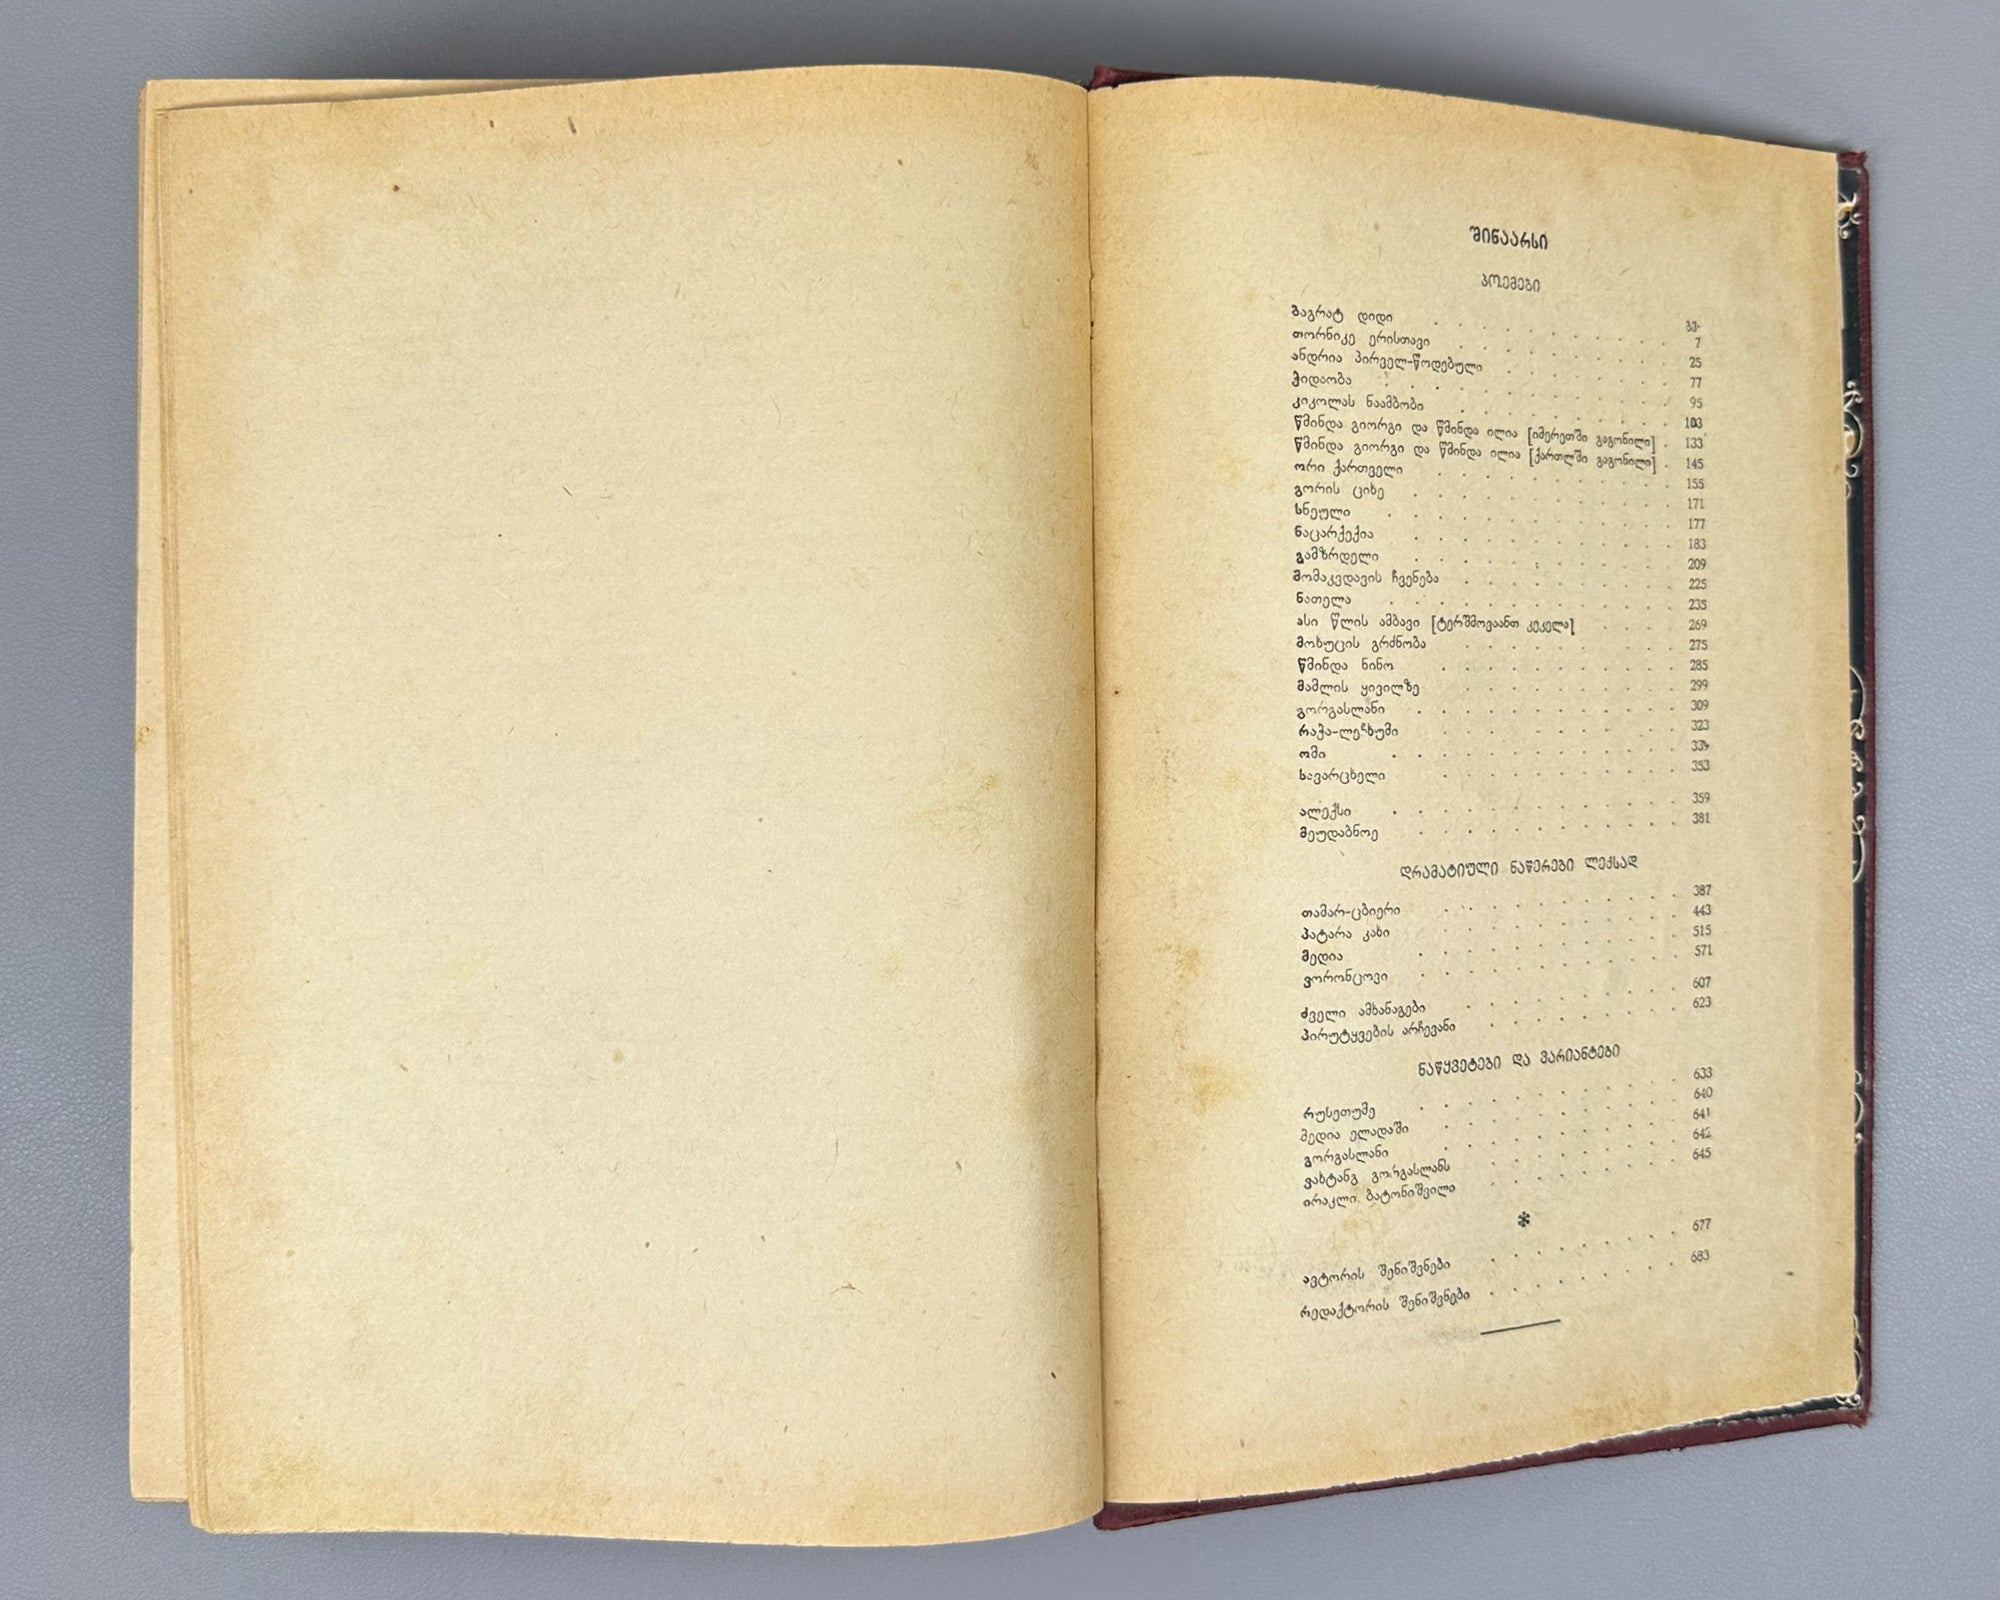 შინაარსი
პოემები
გვ.
ბაგრატ დიდი . . . . . . . . . . 7
თორნიკე ერისთავი . . . . . . . . . . 25
ანდრია პირველ-წოდებული . . . . . . . . 77
ჭიდაობა . . . . . . . . . . . . 95
კიკოლას ნაამბობი . . . . . . . . . . 103
წმინდა გიორგი და წმინდა ილია [იმერეთში გაგონილი] . 133
წმინდა გიორგი და წმინდა ილია [ქართლში გაგონილი] . 145
ორი ქართველი . . . . . . . . . . . 155
გორის ციხე . . . . . . . . . . . . 171
სნეული . . . . . . . . . . . . . 177
ნაცარქექია . . . . . . . . . . . . 183
გამზრდელი . . . . . . . . . . . . 209
მომაკვდავის ჩვენება . . . . . . . . . . 225
ნათელა . . . . . . . . . . . . . 235
ასი წლის ამბავი [ტერშმოვაანთ კეკელა] . . . . 269
მოხუცის გრძნობა . . . . . . . . . . 275
წმინდა ნინო . . . . . . . . . . . 285
მამლის ყივილზე . . . . . . . . . . 299
გორგასლანი . . . . . . . . . . . . 309
რაჭა-ლეჩხუმი . . . . . . . . . . . 323
ომი . . . . . . . . . . . . . 339
სავარცხელი . . . . . . . . . . . 353
ალექსი . . . . . . . . . . . . . 359
მეუდაბნოე . . . . . . . . . . . . 381
დრამატიული ნაწერები ლექსად
თამარ-ცბიერი . . . . . . . . . . . 387
პატარა კახი . . . . . . . . . . . 443
მედია . . . . . . . . . . . . 515
ვორონცოვი . . . . . . . . . . . . 571
ძველი ამხანაგები . . . . . . . . . . 607
პირუტყვების არჩევანი . . . . . . . . . 623
ნაწყვეტები და ვარიანტები
რუსეთუმე . . . . . . . . . . . . 633
მედია ელადაში . . . . . . . . . . . 640
გორგასლანი . . . . . . . . . . . 641
ვახტანგ გორგასლანს . . . . . . . . . 642
ირაკლი ბატონიშვილი . . . . . . . . . 645
*
ავტორის შენიშვნები . . . . . . . . . 677
რედაქტორის შენიშვნები . . . . . . . . . 683